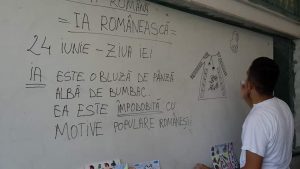 ROMÂNĂ
= IA ROMÂNEASCĂ =
24 IUNIE - ZIUA IEI
IA ESTE O BLUZĂ DE PÂNZĂ
ALBĂ DE BUMBAC.
EA ESTE ÎMPODOBITĂ CU
MOTIVE POPULARE ROMÂNEȘTI